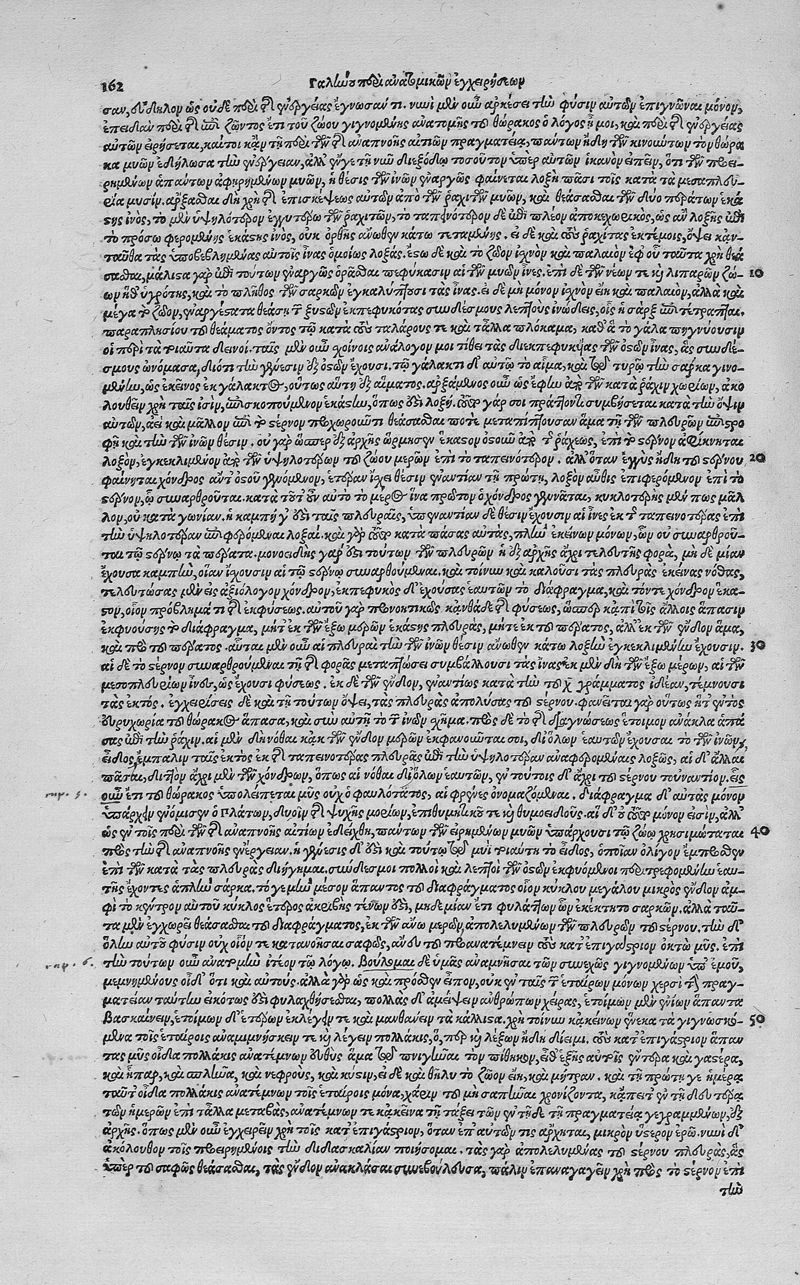 162 Γαληνοῦ περὶ ἀνατομικῶν ἐγχειρήσεων
σαν, εὔδηλον ὡς οὐδὲ περὶ τῆς ἐνεργείας ἔγνωσάν τι. νυνὶ μὲν οὖν ἀρκέσει τὴν φύσιν αὐτῶν ἐπιγνῶναι μόνον,
ἐπειδὰν περὶ τῆς ἐπὶ ζῶντος ἔτι τοῦ ζώου γιγνομένης ἀνατομῆς τοῦ θώρακος ὁ λόγος ᾖ μοι, καὶ περὶ τῆς ἐνεργείας
αὐτῶν εἰρήσεται, καίτοι κἀν τῇ περὶ τῶν τῆς ἀναπνοῆς αἰτίων πραγματείᾳ, πάντων ἤδη τῶν κινούντων τὸν θώρα
κα μυῶν ἐδήλωσα τὴν ἐνέργειαν, ἀλλ' ἔν γε τῇ νῦν διεξόδῳ τοσοῦτον ὑπὲρ αὐτῶν ἱκανὸν εἰπεῖν, ὅτι τῶν προει-
ρημένων ἁπάντων ἀφῃρημένων μυῶν, ἡ θέσις τῶν ἰνῶν ἐναργῶς φαίνεται λοξὴ πᾶσι τοῖς κατὰ τὰ μεσοπλεύ-
ρια μυσίν. ἄρξασθαι δὴ χρὴ τῆς ἐπισκέψεως αὐτῶν ἀπὸ τῶν ῥαχιτῶν μυῶν, καὶ θεάσασθαι τῶν δύο περάτων ἑκά
στης ἰνὸς, τὸ μὲν ὑψηλότερον ἐγγυτέρω τῶν ῥαχιτῶν, τὸ ταπεινότερον δὲ ἐπὶ πλέον ἀποκεχωρηκὸς, ὡς ἂν λοξῆς ἐπὶ
τὸ πρόσω φερομένης ἑκάστης ἰνὸς, οὐκ ὀρθῆς ἄνωθεν κάτω τεταμένης. εἰ δὲ καὶ τοὺς ῥαχίτας ἐκτέμοις, ὄψει κἀν-
ταῦθα τὰς ὑποβεβλημένας αὐτοῖς ἶνας ὁμοίως λοξάς. ἔστω δὲ καὶ τὸ ζῶον ἰσχνὸν καὶ παλαιὸν ἐφ' οὗ ταῦτα χρὴ θεά
σασθαι, μάλιστα γὰρ ἐπὶ τούτων ἐναργῶς ὁρᾶσθαι πεφύκασιν αἱ τῶν μυῶν ἶνες. ἐπὶ δὲ τῶν νέων τε καὶ λιπαρῶν ζώ- 10
ων ἥθ' ὑγρότης, καὶ τὸ πλῆθος τῶν σαρκῶν ἐγκαλύπτουσι τὰς ἶνας. εἰ δὲ μὴ μόνον ἰσχνὸν εἴη καὶ παλαιὸν, ἀλλὰ καὶ
μέγα τὸ ζῶον, ἐναργέστατα θεάσῃ τοῦ ὀστοῦ ἐκπεφυκότας συνδέσμους λεπτοὺς ἰνώδεις, οἷς ἡ σὰρξ ἐπιτέτραπται.
παραπλησίου τοῦ θεάματος ὄντος τῷ κατὰ τοὺς ταλάρους τε καὶ τἄλλα πλόκαμα, καθ' ἃ τὸ γάλα πηγνύουσιν
οἱ περὶ τὰ τοιαῦτα δεινοί. ταῖς μὲν οὖν σχοίνοις ἀνάλογόν μοι τίθει τὰς διεκπεφυκυίας τῶν ὀστῶν ἶνας, ἃς συνδέ-
σμους ὠνόμασα, διότι τὴν γένεσιν ἐξ ὀστῶν ἔχουσι. τῷ γάλακτι δ' αὖ τὸ αἷμα, καὶ τῷ τυρῷ τὴν σάρκα γινο-
μένην, ὡς ἐκεῖνος ἐκ γάλακτος, οὕτως αὕτη ἐξ αἵματος. ἀρξάμενος οὖν ὡς ἔφην ἀπὸ τῶν κατὰ ῥάχιν χωρίων, ἀκο
λουθεῖν χρὴ ταῖς ἰσὶν, ἐπισκοπούμενον ἑκάστην, ὅπως ἐστὶ λοξή. τοῦτο γάρ σοι πράττοντι συμβήσεται κατὰ τὴν ὄψιν
αὐτῶν, ἀεὶ καὶ μᾶλλον ἐπὶ τὸ στέρνον προχωροῦντι θεάσασθαί ποτε μεταπίπτουσαν ἅμα τῇ τῶν πλευρῶν ἐπιστρο
φῇ καὶ τὴν τῶν ἰνῶν θέσιν. οὐ γὰρ ὥσπερ ἐξ ἀρχῆς ὥρμησεν ἕκαστον ὀστοῦν ἀπὸ τῆς ῥάχεως, ἐπὶ τὸ στέρνον ἀφικνεῖται
λοξὸν, ἐγκεκλιμένον ἀπὸ τῶν ὑψηλοτέρων τοῦ ζώου μερῶν ἐπὶ τὸ ταπεινότερον. ἀλλ' ὅταν ἐγγὺς ἤδη τοῦ στέρνου 20
φαίνηται χόνδρος ἀντ' ὀστοῦ γενόμενον, ἑτέραν ἴσχει θέσιν ἐναντίαν τῇ πρώτῃ, λοξὸν αὖθις ἐπιφερόμενον ἐπὶ τὸ
στέρνον, ᾧ συναρθροῦται. κατὰ τοῦτ' οὖν αὐτὸ τὸ μέρος ἵνα πρῶτον ὁ χόνδρος γεννᾶται, κυκλοτερὴς μέν πως μᾶλ
λον, οὐ κατὰ γωνίαν. ἡ καμπή γ' ἐστὶ ταῖς πλευραῖς, ὑπεναντίαν δὲ θέσιν ἔχουσιν αἱ ἶνες ἐκ τῆς ταπεινοτέρας ἐπὶ
τὴν ὑψηλοτέραν ἐπιφερόμεναι λοξαί. καὶ γὰρ τοῦτο κατὰ πάσας αὐτὰς, πλὴν ἐκείνων μόνων, ὧν οὐ συναρθροῦ-
ται τῷ στέρνῳ τὰ πέρατα. μονοειδὴς γάρ ἐστι τούτων τῶν πλευρῶν ἡ ἐξ ἀρχῆς ἄχρι τελευτῆς φορὰ, μηδεμίαν
ἔχουσα καμπὴν, οἵαν ἔχουσιν αἱ τῷ στέρνῳ συναρθρούμεναι. καὶ τοίνυν καὶ καλοῦσι τὰς πλευρὰς ἐκείνας νόθας,
τελευτώσας μὲν εἰς ἀξιόλογον χόνδρον, ἐκπεφυκὸς δ' ἐχούσας ἑαυτῶν τὸ διάφραγμα, καὶ τόν τε χόνδρον ἕκα-
στον, οἷον πρόβλημά τι τῆς ἐκφύσεως. αὐτοῦ γὰρ προνοητικῶς κἀνθάδε τῆς φύσεως, ὥσπερ κἀπὶ τοῖς ἄλλοις ἅπασιν
ἐκφυούσης τὸ διάφραγμα, μήτ' ἐκ τῶν ἔξω μερῶν ἑκάστης πλευρᾶς, μήτε ἐκ τοῦ πέρατος, ἀλλ' ἐκ τῶν ἔνδον ἅμα,
καὶ πρὸ τοῦ πέρατος. αὗται μὲν οὖν αἱ πλευραὶ τὴν τῶν ἰνῶν θέσιν ἄνωθεν κάτω λοξὴν ἐγκεκλιμένην ἔχουσιν. 30
αἱ δὲ τὸ στέρνον συναρθρούμεναι τῇ τῆς φορᾶς μεταπτώσει συμβάλλουσι τὰς ἶνας ἐκ μὲν δὴ τῶν ἔξω μερῶν, αἱ τῶν
μεσοπλευρίων ἶνες, ὡς ἔχουσι φύσεως. ἐκ δὲ τῶν ἔνδον, ἐναντίως κατὰ τὴν τοῦ χ γράμματος ἰδέαν, τέμνουσι
τὰς ἐκτός. ἐγχειρίσεις δὲ καὶ τῇ τούτων ὄψει, τὰς πλευρὰς ἀπολύσας τοῦ στέρνου. φανεῖται γὰρ οὕτως ἥ τ' ἐντὸς
εὐρυχωρία τοῦ θώρακος ἅπασα, καὶ σὺν αὐτῇ τὸ τῶν ἰνῶν σχῆμα. πρὸς δὲ τὸ τῆς διαγνώσεως ἕτοιμον ἀνάκλα ἁπά
σας ἐπὶ τὴν ῥάχιν. αἱ μὲν δὴ νόθαι κἀκ τῶν ἔνδον μερῶν ἐκφανοῦνταί σοι, δι' ὅλων ἑαυτῶν ἔχουσαι τὸ τῶν ἰνῶν
εἶδος, ἔμπαλιν ταῖς ἐκτὸς ἐκ τῆς ταπεινοτέρας πλευρᾶς ἐπὶ τὴν ὑψηλοτέραν ἀναφερομέναις λοξῶς, αἱ δ' ἄλλαι
πᾶσαι, διττὸν ἄχρι μὲν τῶν χόνδρων, ὅπως αἱ νόθαι δι' ὅλων ἑαυτῶν, ἐν τούτοις δ' ἄχρι τοῦ στέρνου τοὐναντίον. εἷς
οὖν ἔτι τοῦ θώρακος ὑπολείπεται μῦς οὐχ ὁ φαυλότατος, αἱ φρένες ὀνομαζόμεναι. διάφραγμα δ' αὐτὰς μόνον
ὑπάρχειν ἐνόμισεν ὁ Πλάτων, δυοῖν τῆς ψυχῆς μορίων, ἐπιθυμητικοῦ τε καὶ θυμοειδοῦς. αἱ δ' οὐ τοῦτο μόνον εἰσὶν, ἀλλ'
ὡς ἐν τοῖς περὶ τῶν τῆς ἀναπνοῆς αἰτίων ἐδείχθη, πάντων τῶν εἰρημένων μυῶν ὑπάρχουσι τῷ ζώῳ χρησιμώταται 40
πρὸς τὴν τῆς ἀναπνοῆς ἐνέργειαν. ἡ γένεσις δ' ἐστὶ καὶ τούτῳ τῷ μυῒ τοιαύτη τὸ εἶδος, ὁποίαν ὀλίγον ἔμπροσθεν
ἐπὶ τῶν κατὰ τὰς πλευρὰς διήγημαι. σύνδεσμοι πολλοὶ καὶ λεπτοὶ τῶν ὀστῶν ἐκφυόμενοι περιτρεφομένην ἑαυ-
τῆς ἔχοντες ἁπλὴν σάρκα. τό γε μὴν μέσον ἅπαντος τοῦ διαφράγματος οἷον κύκλου μεγάλου μικρὸς ἔνδον ἀμ-
φὶ τὸ κέντρον αὐτοῦ κύκλος ἕτερος ἀκριβὴς τένων ἐστὶ, μηδεμίαν ἔτι φυλάττων ὧν ἐκέκτητο σαρκῶν. ἀλλὰ ταῦ-
τα μὲν ἐγχωρεῖ θεάσασθαι τοῦ διαφράγματος, ἐκ τῶν ἄνω μερῶν ἀπολελυμένων τῶν πλευρῶν τοῦ στέρνου. τὴν δ'
ὅλην αὐτοῦ φύσιν οὐχ οἷόν τε κατανοῆσαι σαφῶς, ἄνευ τοῦ προανατέμνειν τοὺς κατ' ἐπιγάστριον ὀκτὼ μῦς. ἐπὶ
τὴν τούτων οὖν ἀνατομὴν ἰτέον τῷ λόγῳ. Βούλομαι δὲ ὑμᾶς ἀναμνῆσαι τῶν συνεχῶς γιγνομένων ὑπ' ἐμοῦ,
μεμνημένους οἶδ' ὅτι καὶ αὐτούς. ἀλλὰ γὰρ ὡς καὶ πρόσθεν εἶπον, οὐκ ἐν ταῖς τῶν ἑταίρων μόνων χερσὶ τὴν πραγ-
ματείαν ταύτην εἰκότως ἐστὶ φυλαχθήσεσθαι, πολλὰς δ' ἀμείψειν ἀνθρώπων χεῖρας, ἑτοίμων μὲν ἐνίων ἅπαντα
βασκαίνειν, ἑτοίμων δ' ἑτέρων ἐκλέγειν τε καὶ μανθάνειν τὰ κάλλιστα. χρὴ τοίνυν κἀκείνων ἕνεκα τὰ γιγνωσκό- 50
μενα τοῖς ἑταίροις ἀναμιμνήσκειν τε καὶ λέγειν πολλάκις, ὅπερ καὶ λέξων ἤδη δίειμι. τοὺς κατ' ἐπιγάστριον ἅπαν
τας μῦς οἶσθα πολλάκις ἀνατέμνων εὐθὺς ἅμα τῷ πνιγῆναι τὸν πίθηκον, εἶθ' ἑξῆς αὐτοῖς ἔντερα καὶ γαστέρα,
καὶ ἧπαρ, καὶ σπλῆνα, καὶ νεφροὺς, καὶ κύστιν, εἰ δὲ καὶ θῆλυ τὸ ζῶον εἴη, καὶ μήτραν. καὶ τῇ πρώτῃ γε ἡμέρᾳ
ταῦτ' οἶσθα πολλάκις ἀνατέμνων τοῖς ἑταίροις μόνα, χάριν τοῦ μὴ σαπῆναι χρονίζοντα, κἄπειτ' ἐν τῇ δευτέρᾳ
τῶν ἡμερῶν ἐπὶ τἄλλα μεταβὰς, ἀνατέμνων τε κἀκεῖνα τῇ τάξει τῶν ἐν τῇδε τῇ πραγματείᾳ γεγραμμένων, ἐξ
ἀρχῆς. ὅπως μὲν οὖν ἐγχειρεῖν χρὴ τοῖς κατ' ἐπιγάστριον, ὅταν ἐπ' αὐτῶν τις ἄρχηται, μικρὸν ὕστερον ἐρῶ. νυνὶ δ'
ἀκόλουθον τοῖς προειρημένοις τὴν διδασκαλίαν ποιήσομαι. τὰς γὰρ ἀπολελυμένας τοῦ στέρνου πλευρὰς, ἃς
ὑπὲρ τοῦ σαφῶς θεάσασθαι, τὰς ἔνδον ἀνακλάσαι συνεβούλευσα, πάλιν ἐπαναγαγεῖν χρὴ πρὸς τὸ στέρνον ἐπὶ
τὴν